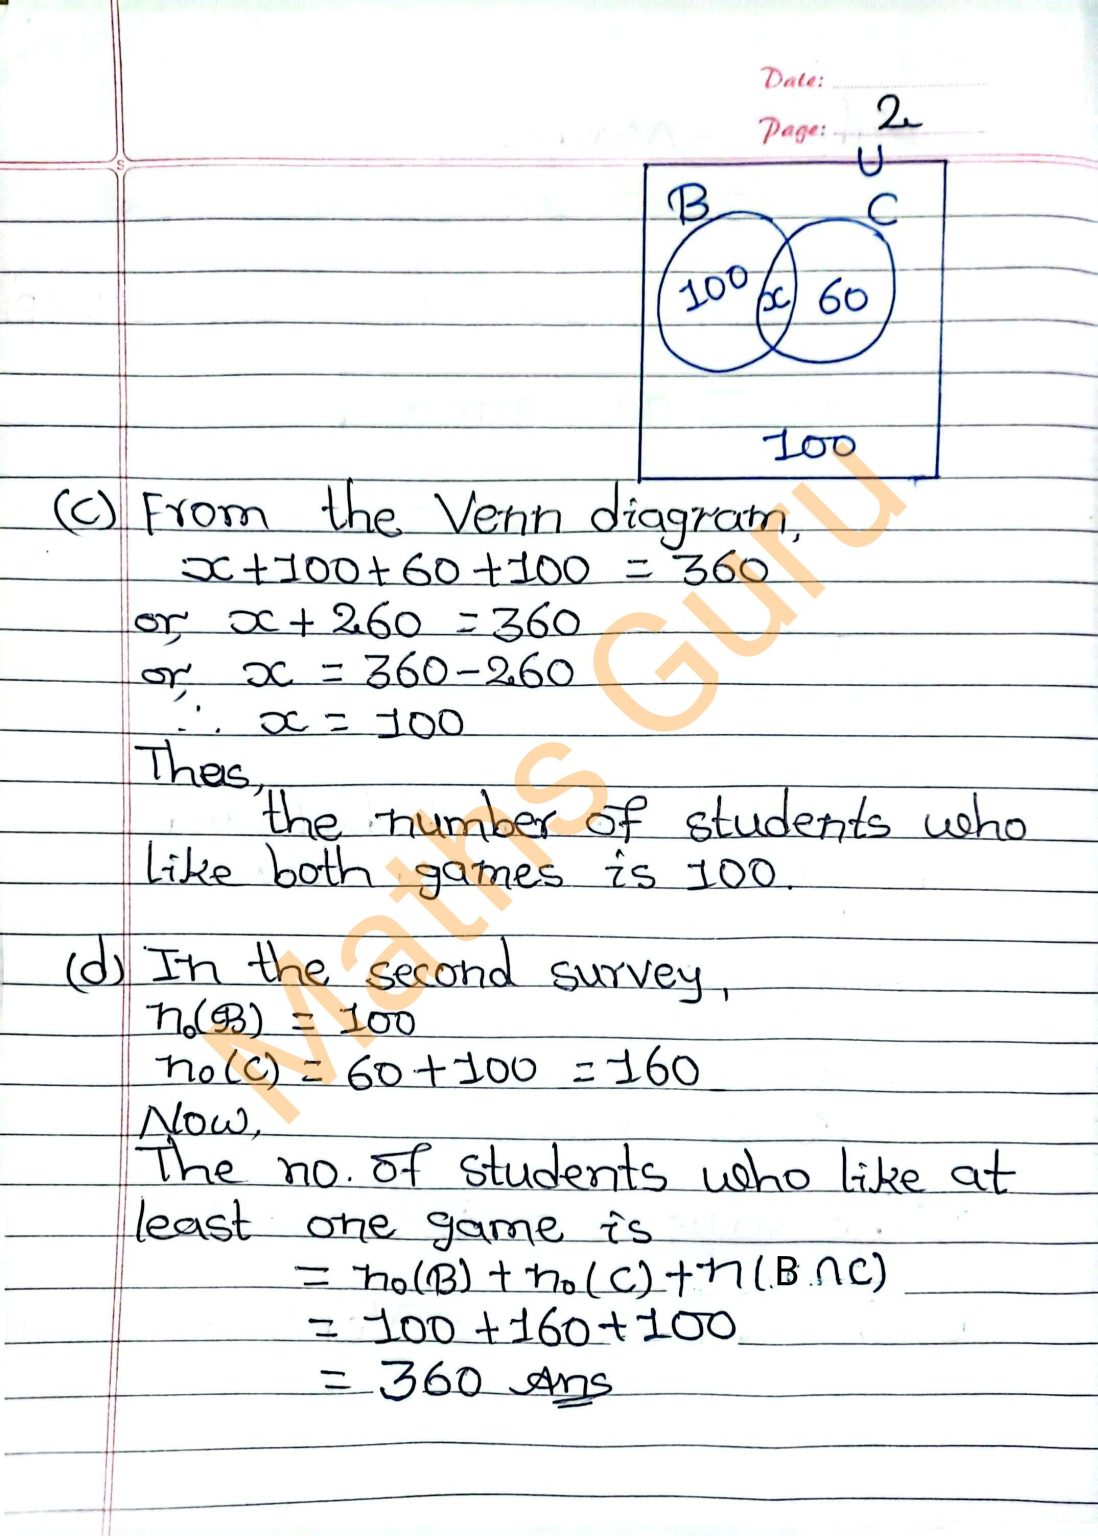 Date:
Page: 2
U
B C
100 x 60
100
(c) From the Venn diagram,
x+100+60+100 = 360
or, x+260 = 360
or, x = 360-260
∴ x = 100
Thus,
the number of students who
like both games is 100.
(d) In the second survey,
n₀(B) = 100
n₀(C) = 60+100 = 160
Now,
The no. of students who like at
least one game is
= n₀(B) + n₀(C) + n(B∩C)
= 100+160+100
= 360 Ans
Maths Guru